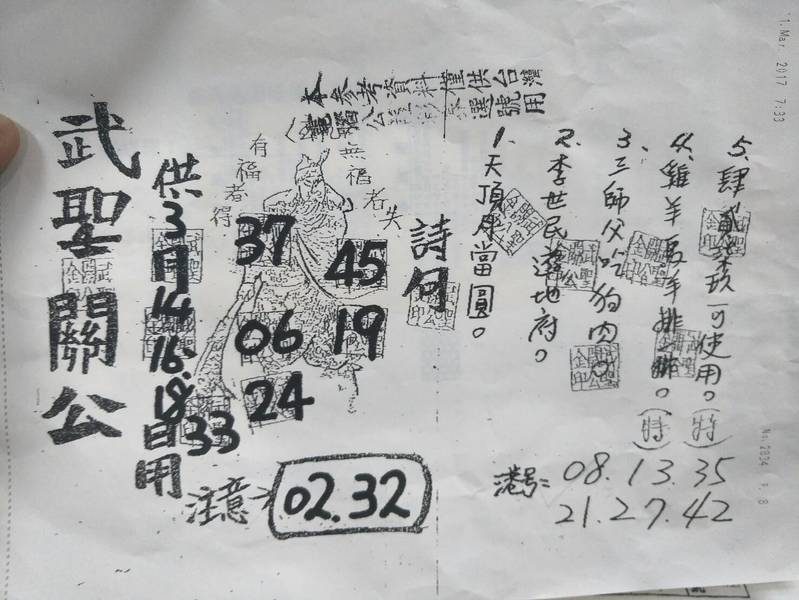 本參考資料僅供台灣
武聖關公
供3月14.16.18日用
有福者得
無福者失
37
45
06
19
24
33
注意→
02.32
詩句
1、天頂月當圓。
2、李世民遊地府。
3、三師父吃狗肉
4、雞羊 羊排 。(特)
5、肆貳 玖可使用。(特)
港号:
08.13.35
21.27.42
1.Mar. 2017 7:33
No.2834 P. 8